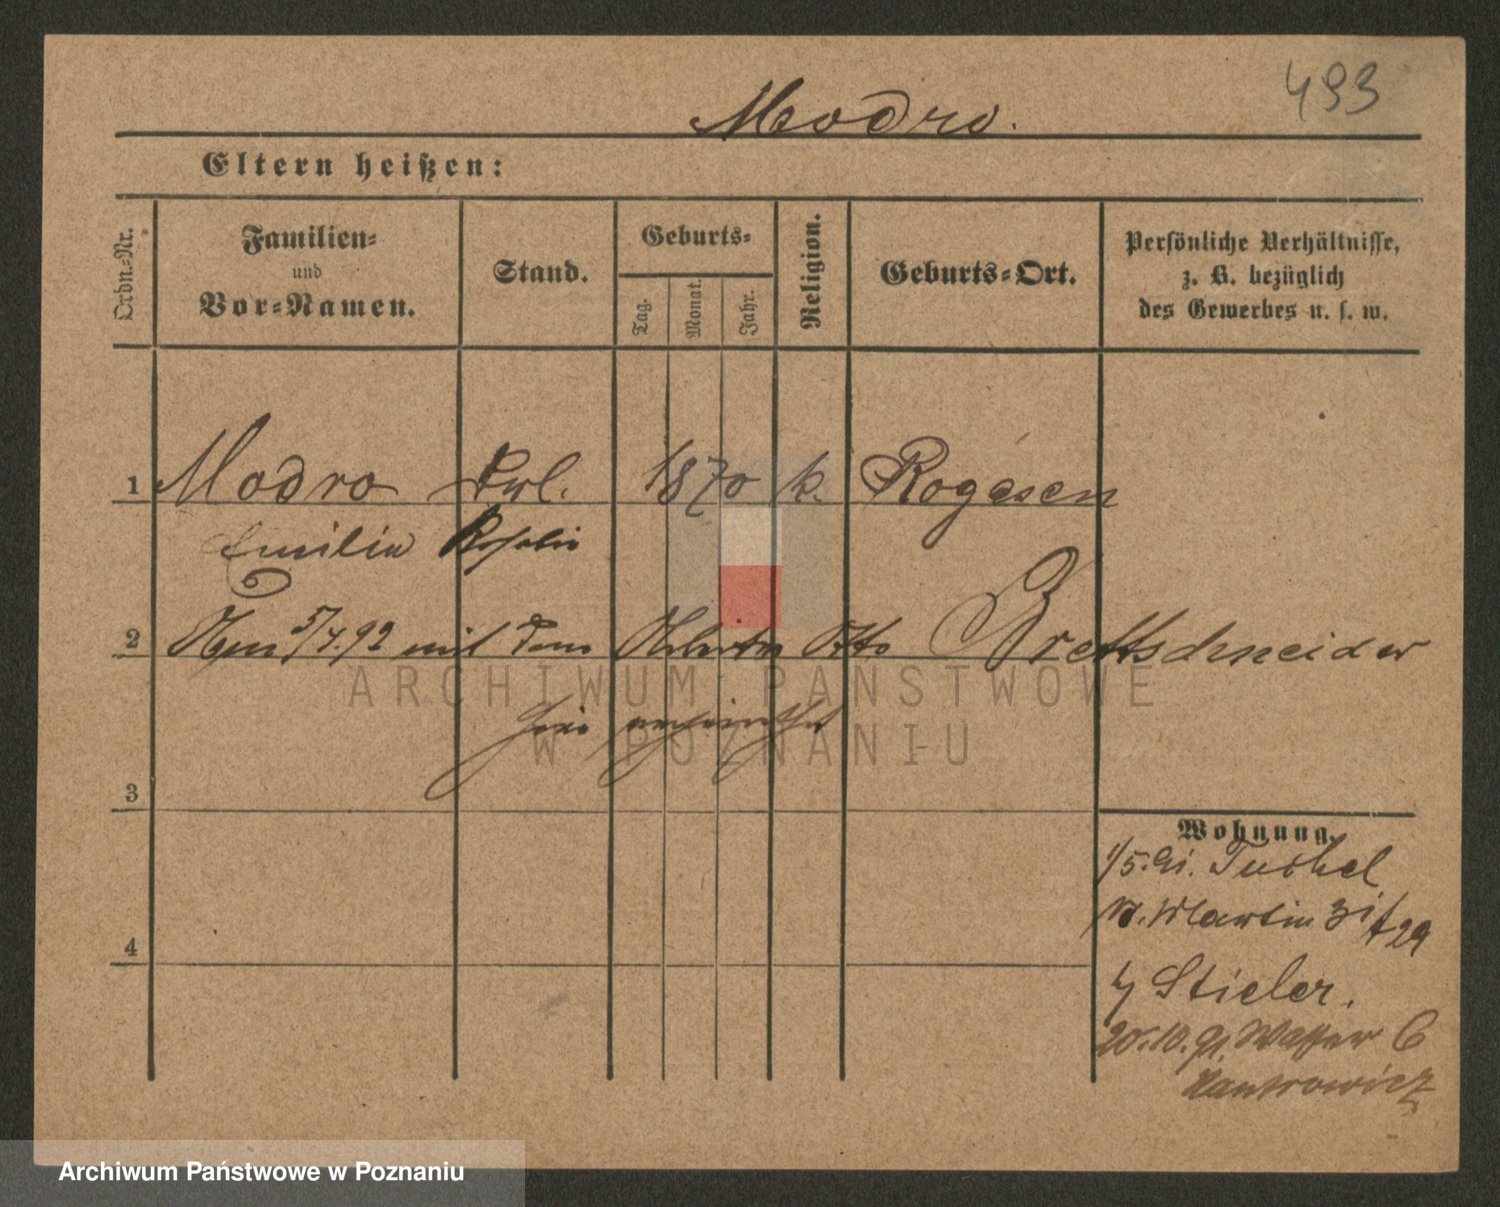 493
Modro.
Eltern heißen:
Ordn.-Nr.
Familien-
und
Vor-Namen.
Stand.
Geburts-
Tag.
Monat.
Jahr.
Religion.
Geburts-Ort.
Persönliche Verhältnisse,
z. B. bezüglich
des Gewerbes u. s. w.
1 Modro 1870 k. Rogasen
Emilie Rosalie
2 5/7.92 mit dem Arbeiter Otto Brettschneider
ARCHIWUM PAŃSTWOWE
hier verheirathet
W POZNANIU
3
Wohnung.
St. Martin
4
Stieler.
20.10. Wasser 6
Kantrowicz
Archiwum Państwowe w Poznaniu